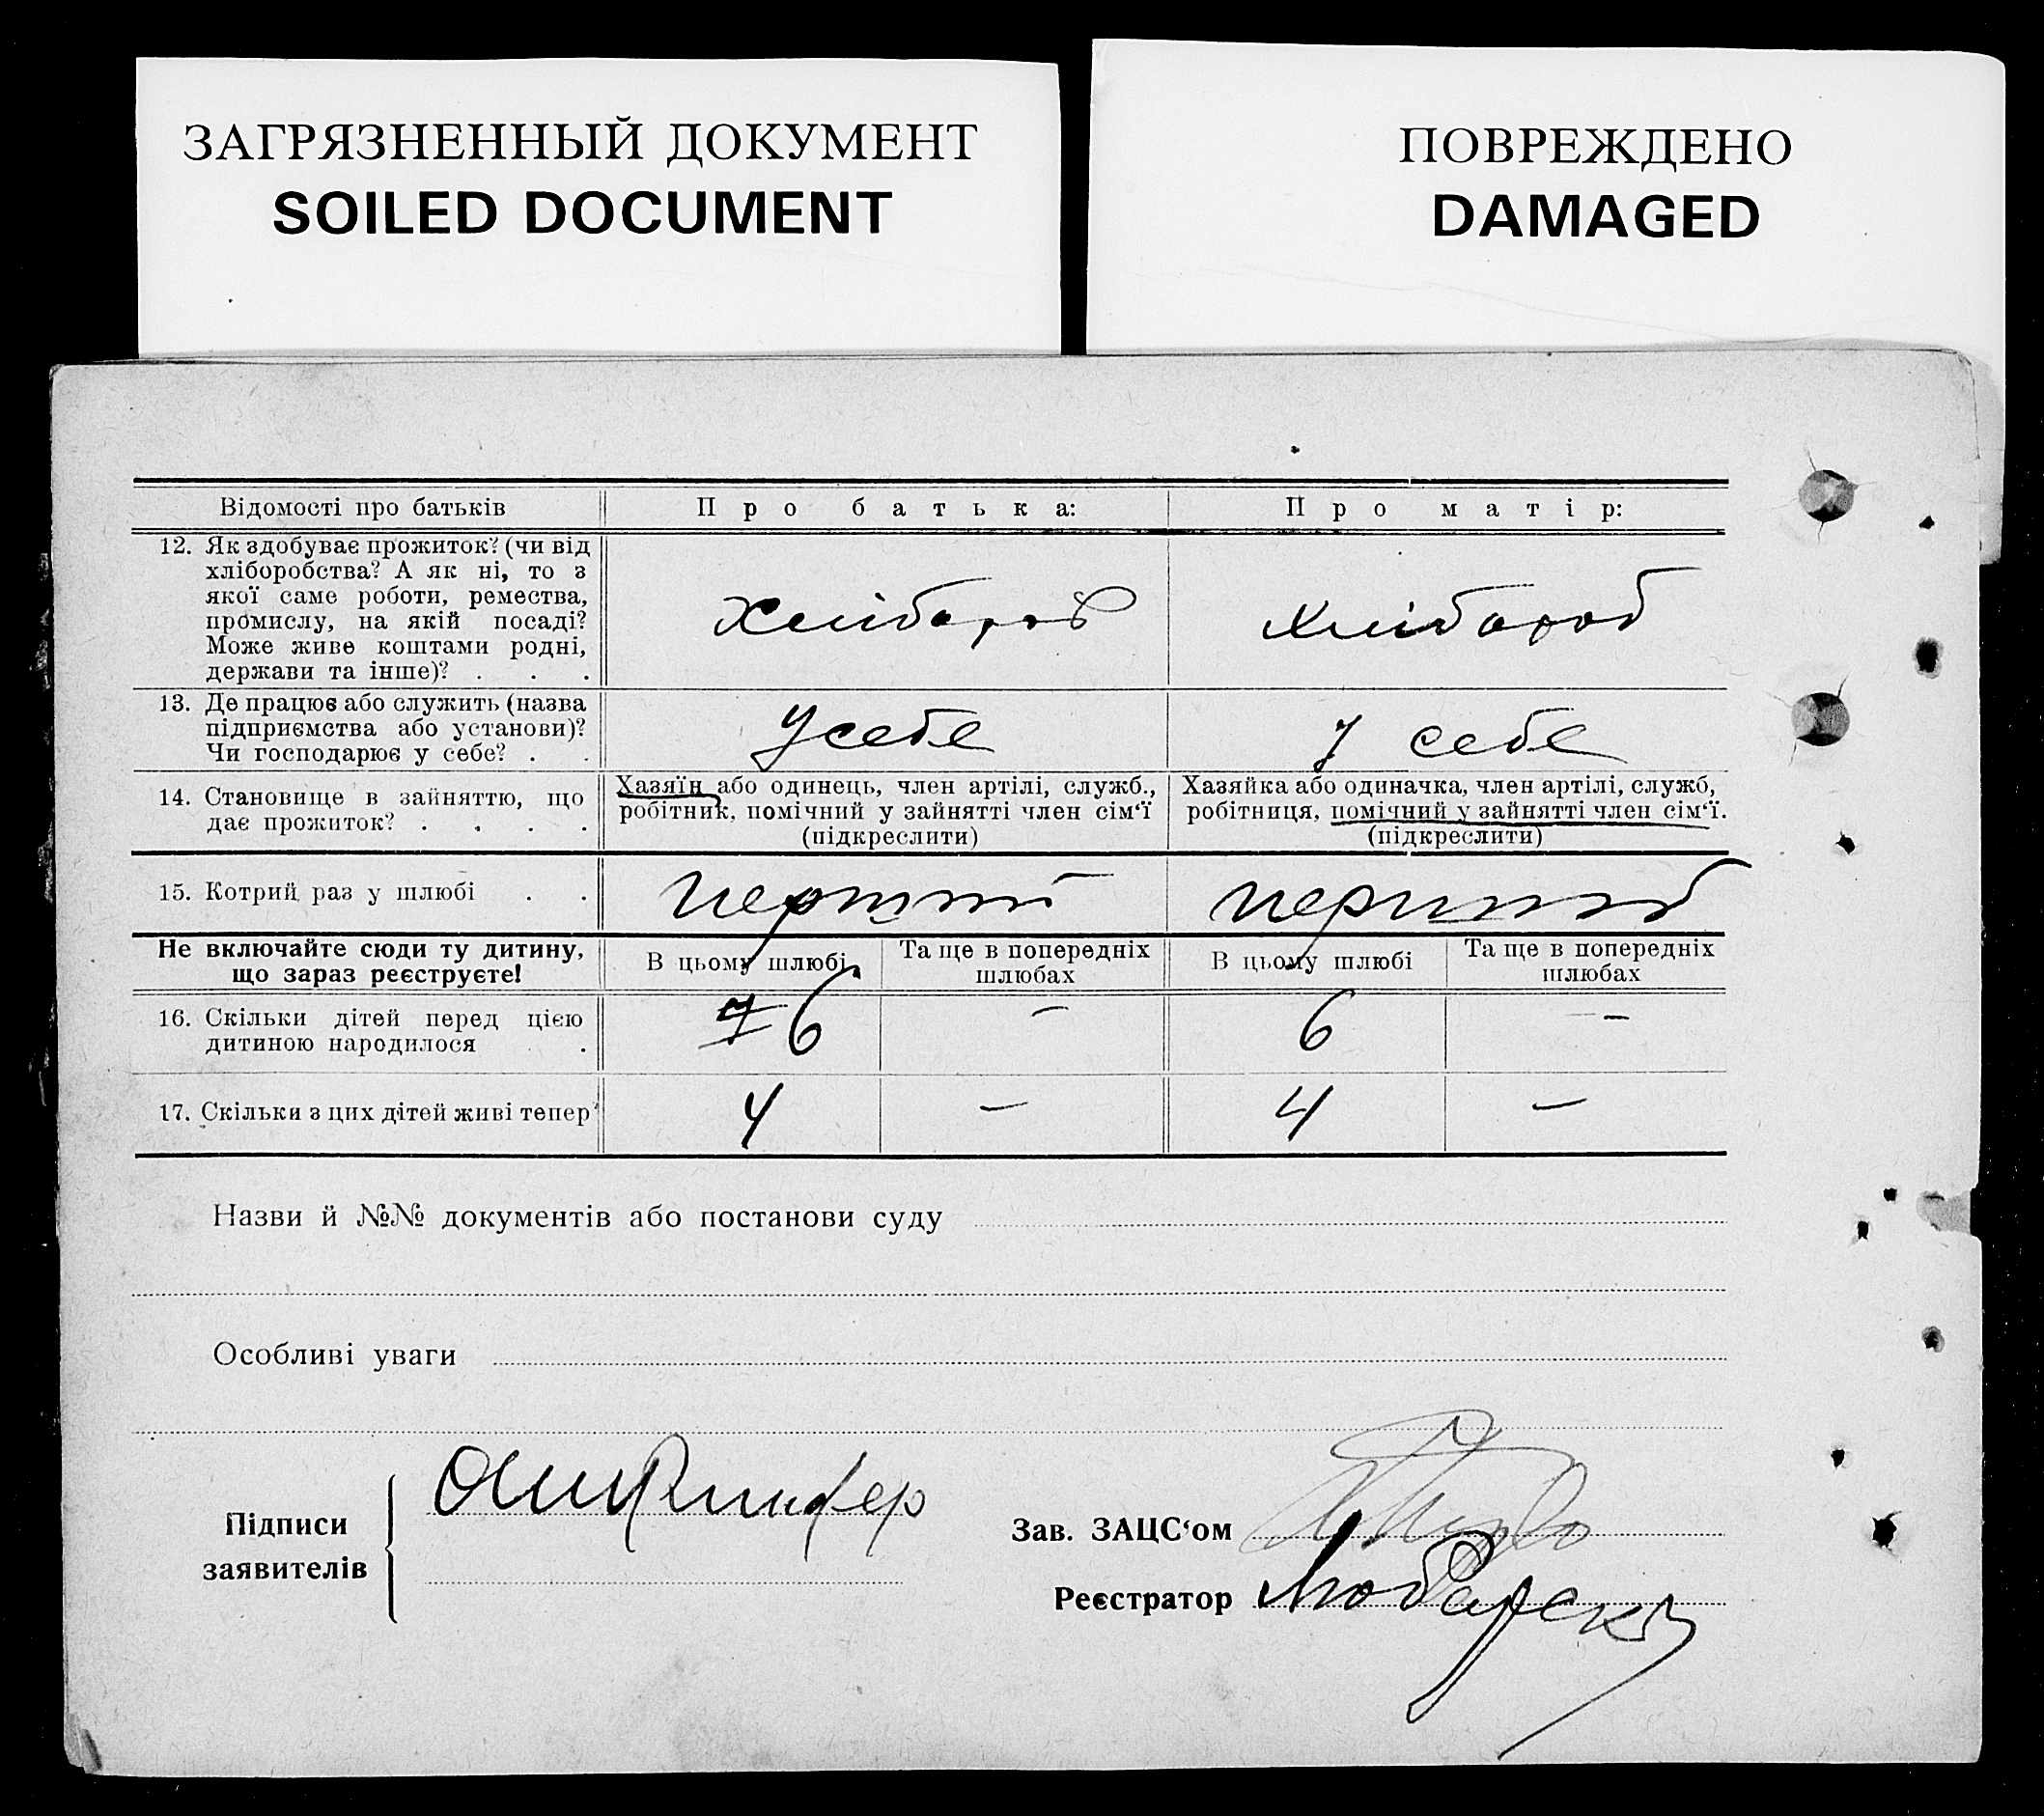 ЗАГРЯЗНЕННЫЙ ДОКУМЕНТ
SOILED DOCUMENT
ПОВРЕЖДЕНО
DAMAGED
Відомості про батьків Про батька: Про матір:
12. Як здобуває прожиток? (чи від
хліборобства? А як ні, то з
якої саме роботи, ремества,
промислу, на якій посаді?
Може живе коштами родні,
держави та інше)? . . .
Хлібороб Хлібороб
13. Де працює або служить (назва
підприємства або установи)?
Чи господарює у себе? . .
У себе У себе
14. Становище в зайняттю, що
дає прожиток? . . . .
Хазяїн або одинець, член артілі, служб.,
робітник, помічний у зайнятті член сім‘ї
(підкреслити)
Хазяйка або одиначка, член артілі, служб,
робітниця, помічний у зайнятті член сім‘ї.
(підкреслити)
15. Котрий раз у шлюбі . . перший перший
Не включайте сюди ту дитину,
що зараз реєструєте!
В цьому шлюбі Та ще в попередніх
шлюбах
В цьому шлюбі Та ще в попередніх
шлюбах
16. Скільки дітей перед цією
дитиною народилося .
7 6 – 6 –
17. Скільки з цих дітей живі тепер 4 – 4 –
Назви й №№ документів або постанови суду
Особливі уваги
Підписи
заявителів
Зав. ЗАЦС‘ом
Реєстратор